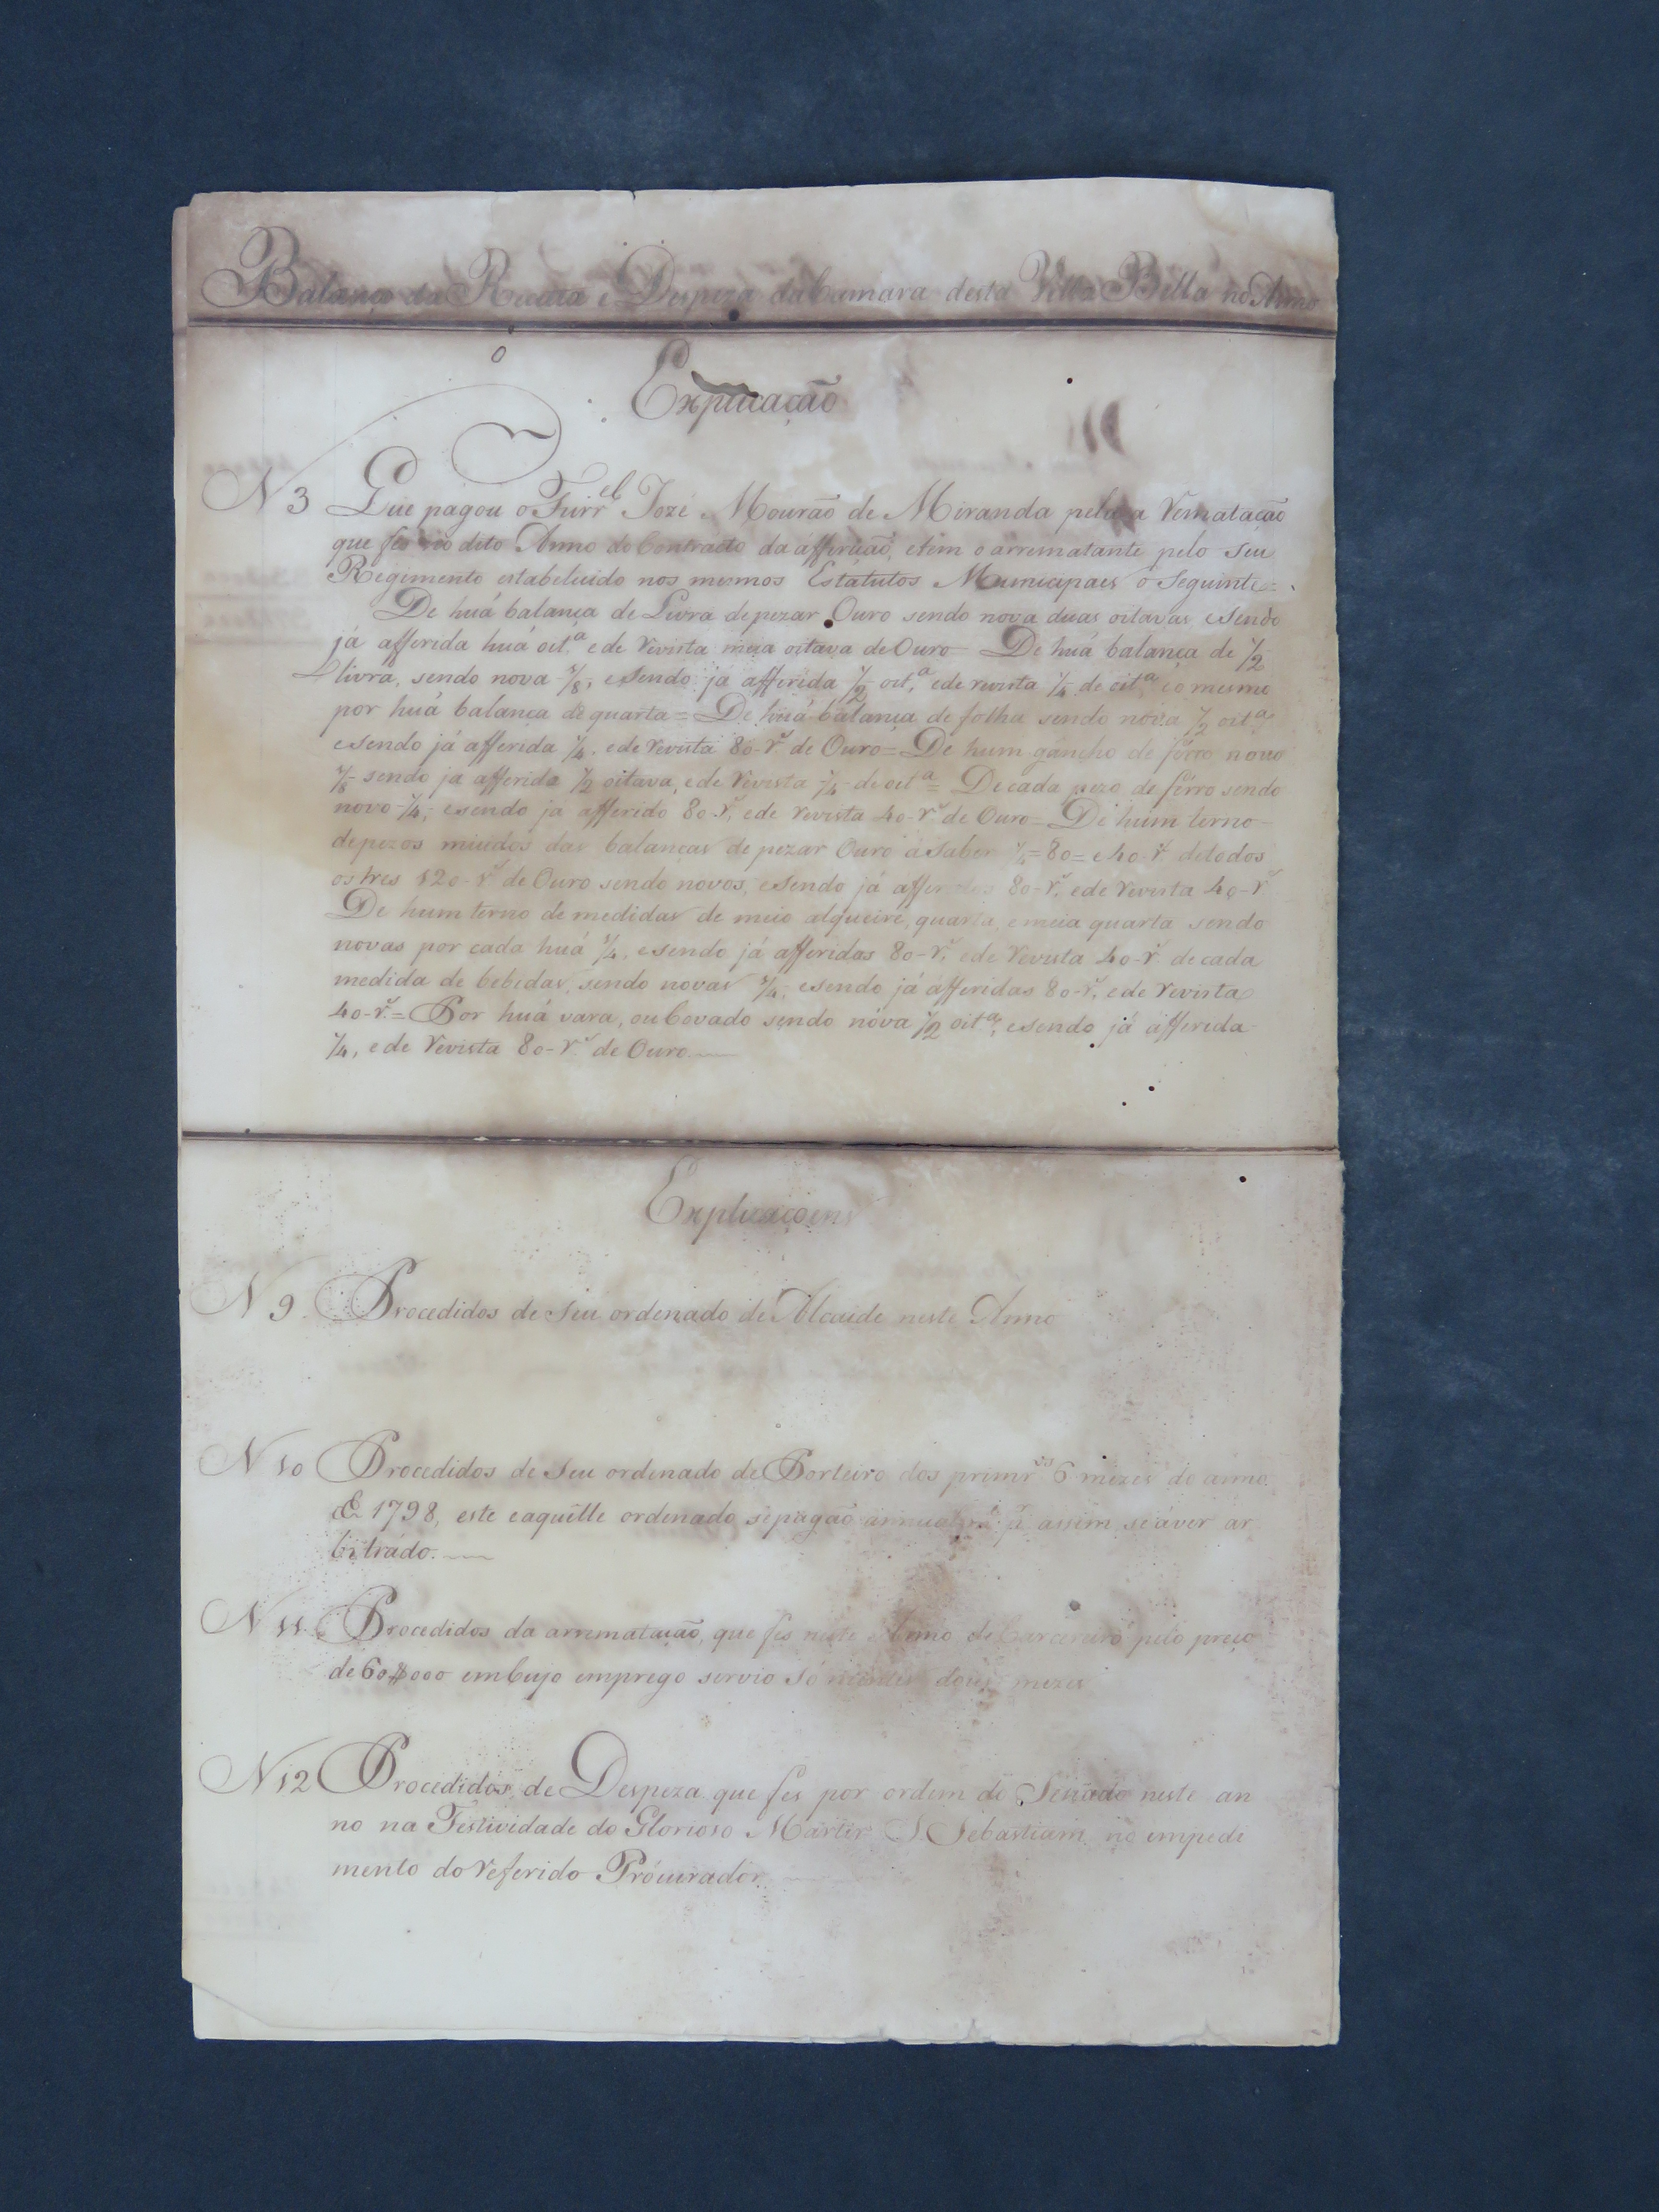 Balanço da Receita e Despeza da Camara desta Villa Bella no Anno
Explicação
N 3 Que pagou o Furr.el Jozé Mourão de Miranda pela a rematação
que fes no dito Anno do Contracto da afferição, etem o arrematante pelo seu
Regimento estabelecido nos mesmos Estatutos Municipaes o Seguinte=
De huá balança de Livra depezar Ouro sendo nova duas oitavas, esendo
já afferida huá oit.a e de revista meia oitava de Ouro- De huá balança de 1/2
livra, sendo nova 1/8, esendo já afferida 1/2 oit.a ede revista 1/4 de oit.a eo mesmo
por huá balança de quarta= De huá balança de folha sendo nova 1/2 oit.a
esendo já afferida 1/4, ede revista 80-r.s de Ouro= De hum gancho de ferro novo
1/8 sendo ja afferido 1/2 oitava, ede revista 1/4 de oit.a= Decada pezo de ferro sendo
novo 1/4, esendo ja afferido 80 r.s, ede revista 40-r.s de Ouro= De hum terno
depezos miudos das balanças de pezar Ouro a Saber 1/4=80= e40 r.s detodos
os tres 120-r.s de Ouro sendo novos, esendo já afferidos 80-r.s, ede revista 40-r.s
De hum terno de medidas de meio alqueire, quarta, emeia quarta sendo
novas por cada huá 1/4, esendo já afferidas 80-r.s, ede revista 40-r.s decada
medida de bebidas, sendo novas 1/4, esendo já afferidas 80-r.s, ede revista
40-r.s= Por huá vara, ou Covado sendo nóva 1/2 oit.a, esendo já afferida
1/4, ede revista 80-r.s de Ouro.
Explicaçoens
N 9 Procedidos de Seu ordenado de Alcaide neste Anno
N 10 Procedidos de Seu ordenado de Porteiro dos primr.os 6 mezes do anno
de 1798, este eaquelle ordenado sepagão annualm.e p.r assim se áver ar
bitrádo.
N 11 Procedidos da arrematação, que fes neste Anno de Carcereiro pelo preço
de 60$000 em Cujo emprego servio Sómentes dous mezes
N 12 Procedidos de Despeza que fes por ordem do Senado neste an
no na Festividade do Glorioso Martir S. Sebastiam no impedi
mento do referido Prócurador.